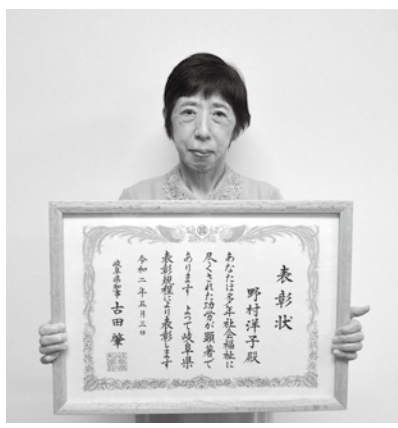 表彰状
野村洋子殿
あなたは多年社会福祉に
尽くされた功労が顕著で
あります よって岐阜県
表彰規程により表彰します
令和二年五月三日
岐阜県知事 古田肇